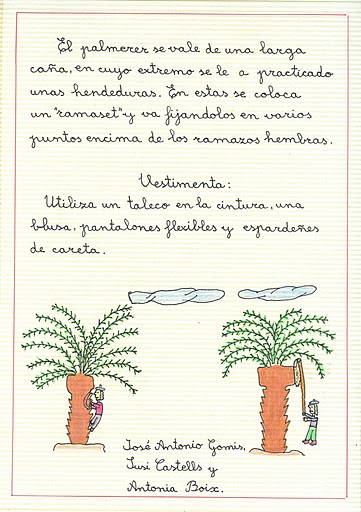 El palmerer se vale de una larga
caña, en cuyo extremo se le a practicado
unas hendeduras. En estas se coloca
un "ramaset" y va fijandolos en varios
puntos encima de los ramazos hembras.
Vestimenta:
Utiliza un taleco en la cintura, una
blusa, pantalones flexibles y espardeñes
de careta.
José Antonio Gomis,
Susi Castells y
Antonia Boix.